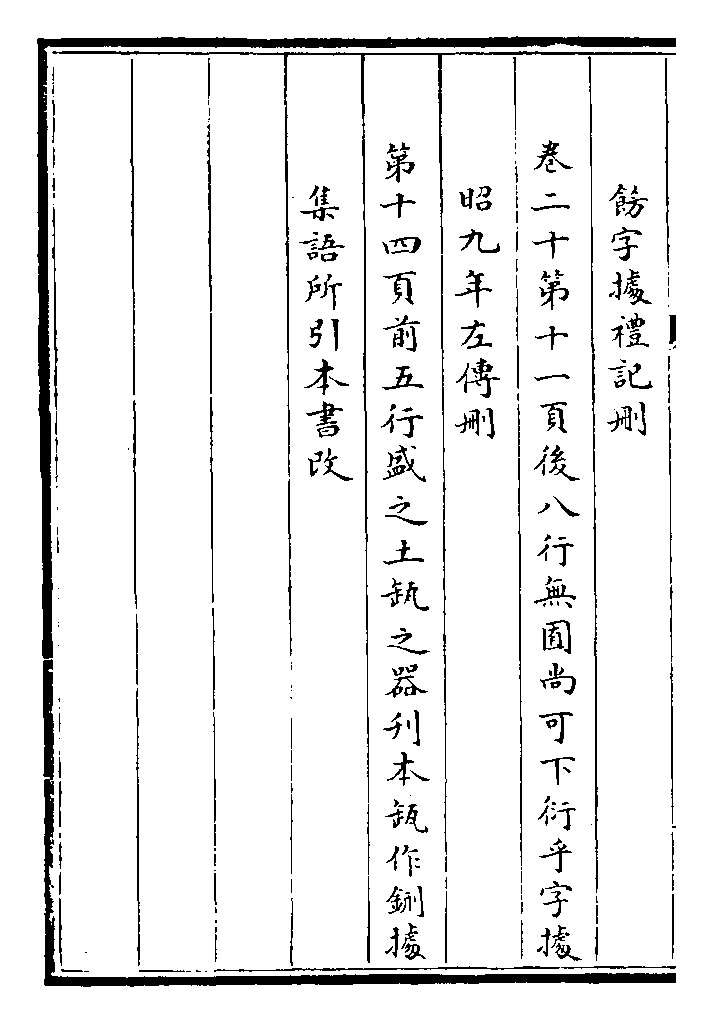 餝字據禮記刪
卷二十第十一頁後八行無囿尚可下衍乎字據
昭九年左傳刪
第十四頁前五行盛之土缻之器刊本缻作鉶據
集語所引本書改